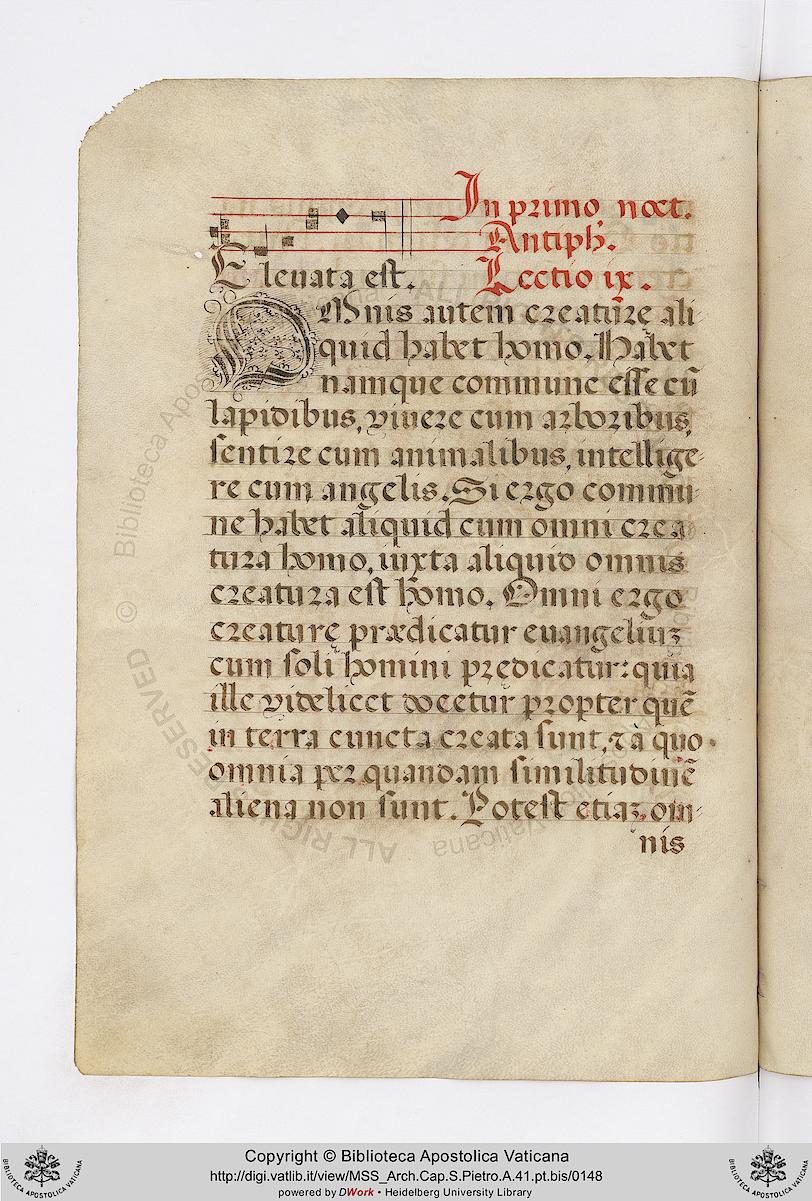 In primo noct.
Antiph̄.
Eleuata est. Lectio ix.
OMnis autem creature ali-
quid habet homo. Habet
namque commune esse cū
lapidibus, viuere cum arboribus,
sentire cum animalibus, intellige-
re cum angelis. Si ergo commu-
ne habet aliquid cum omni crea
tura homo, iuxta aliquid omnis
creatura est homo. Omni ergo
creaturę prædicatur euangeliuꝫ
cum soli homini predicatur: quia
ille videlicet docetur propter quē
in terra cuncta creata sunt, ⁊ à quo
omnia per quandam similitudinē
aliena non sunt. Potest etiaꝫ om-
nis
Copyright © Biblioteca Apostolica Vaticana
http://digi.vatlib.it/view/MSS_Arch.Cap.S.Pietro.A.41.pt.bis/0148
powered by DWork • Heidelberg University Library